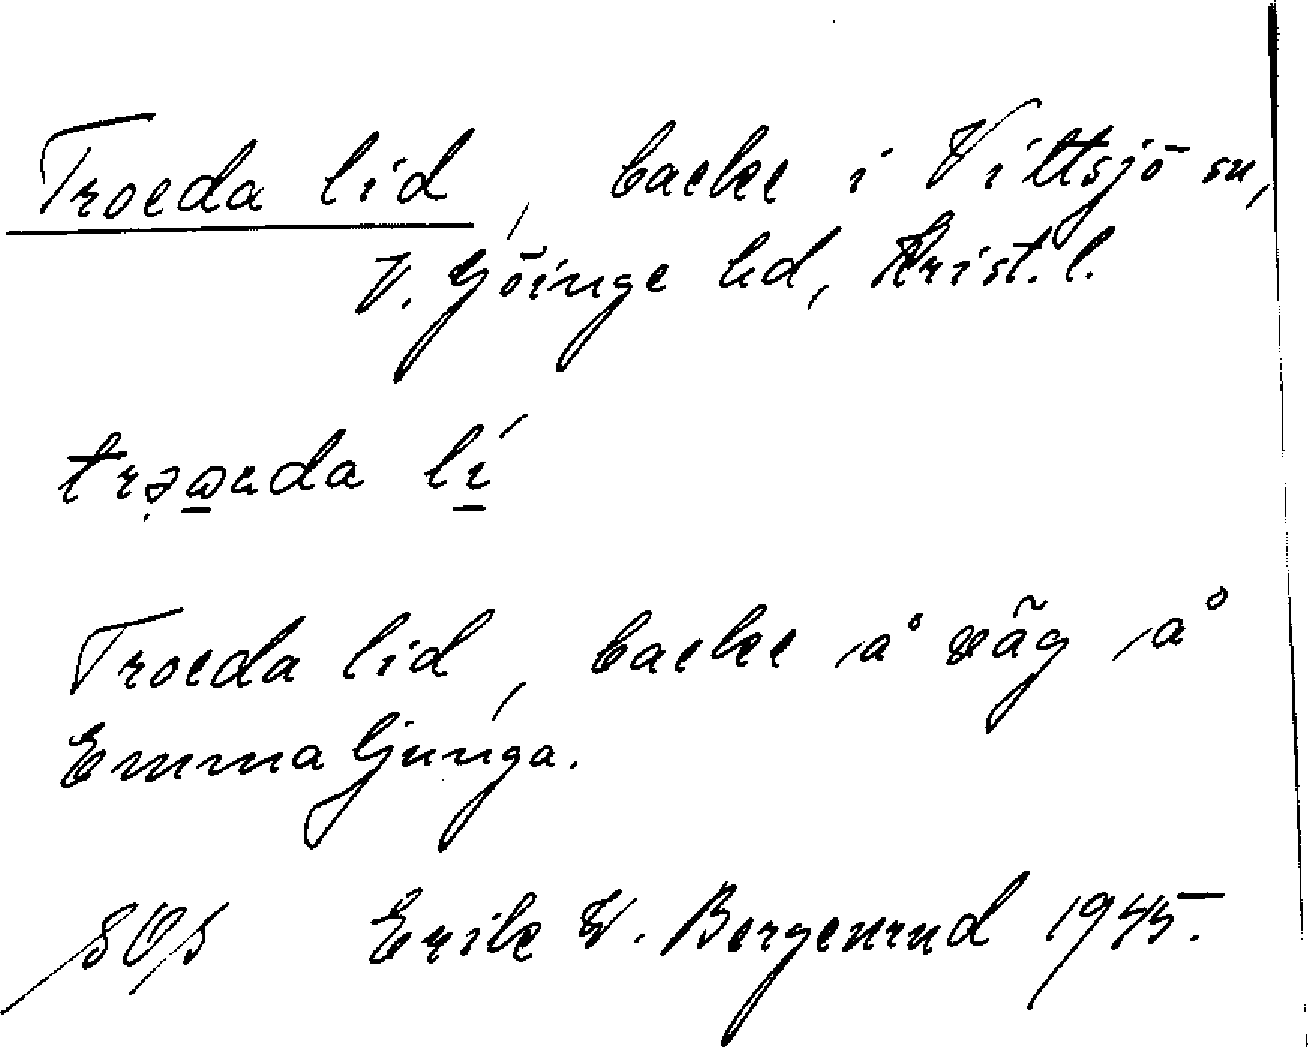 Troeda lid, backe i Vittsjö sn,
V. Göinge hd, Krist. l.
trəωeda lí
Troeda lid, backe å väg å
Emmaljunga.
Erik W. Bergenrud 1945.